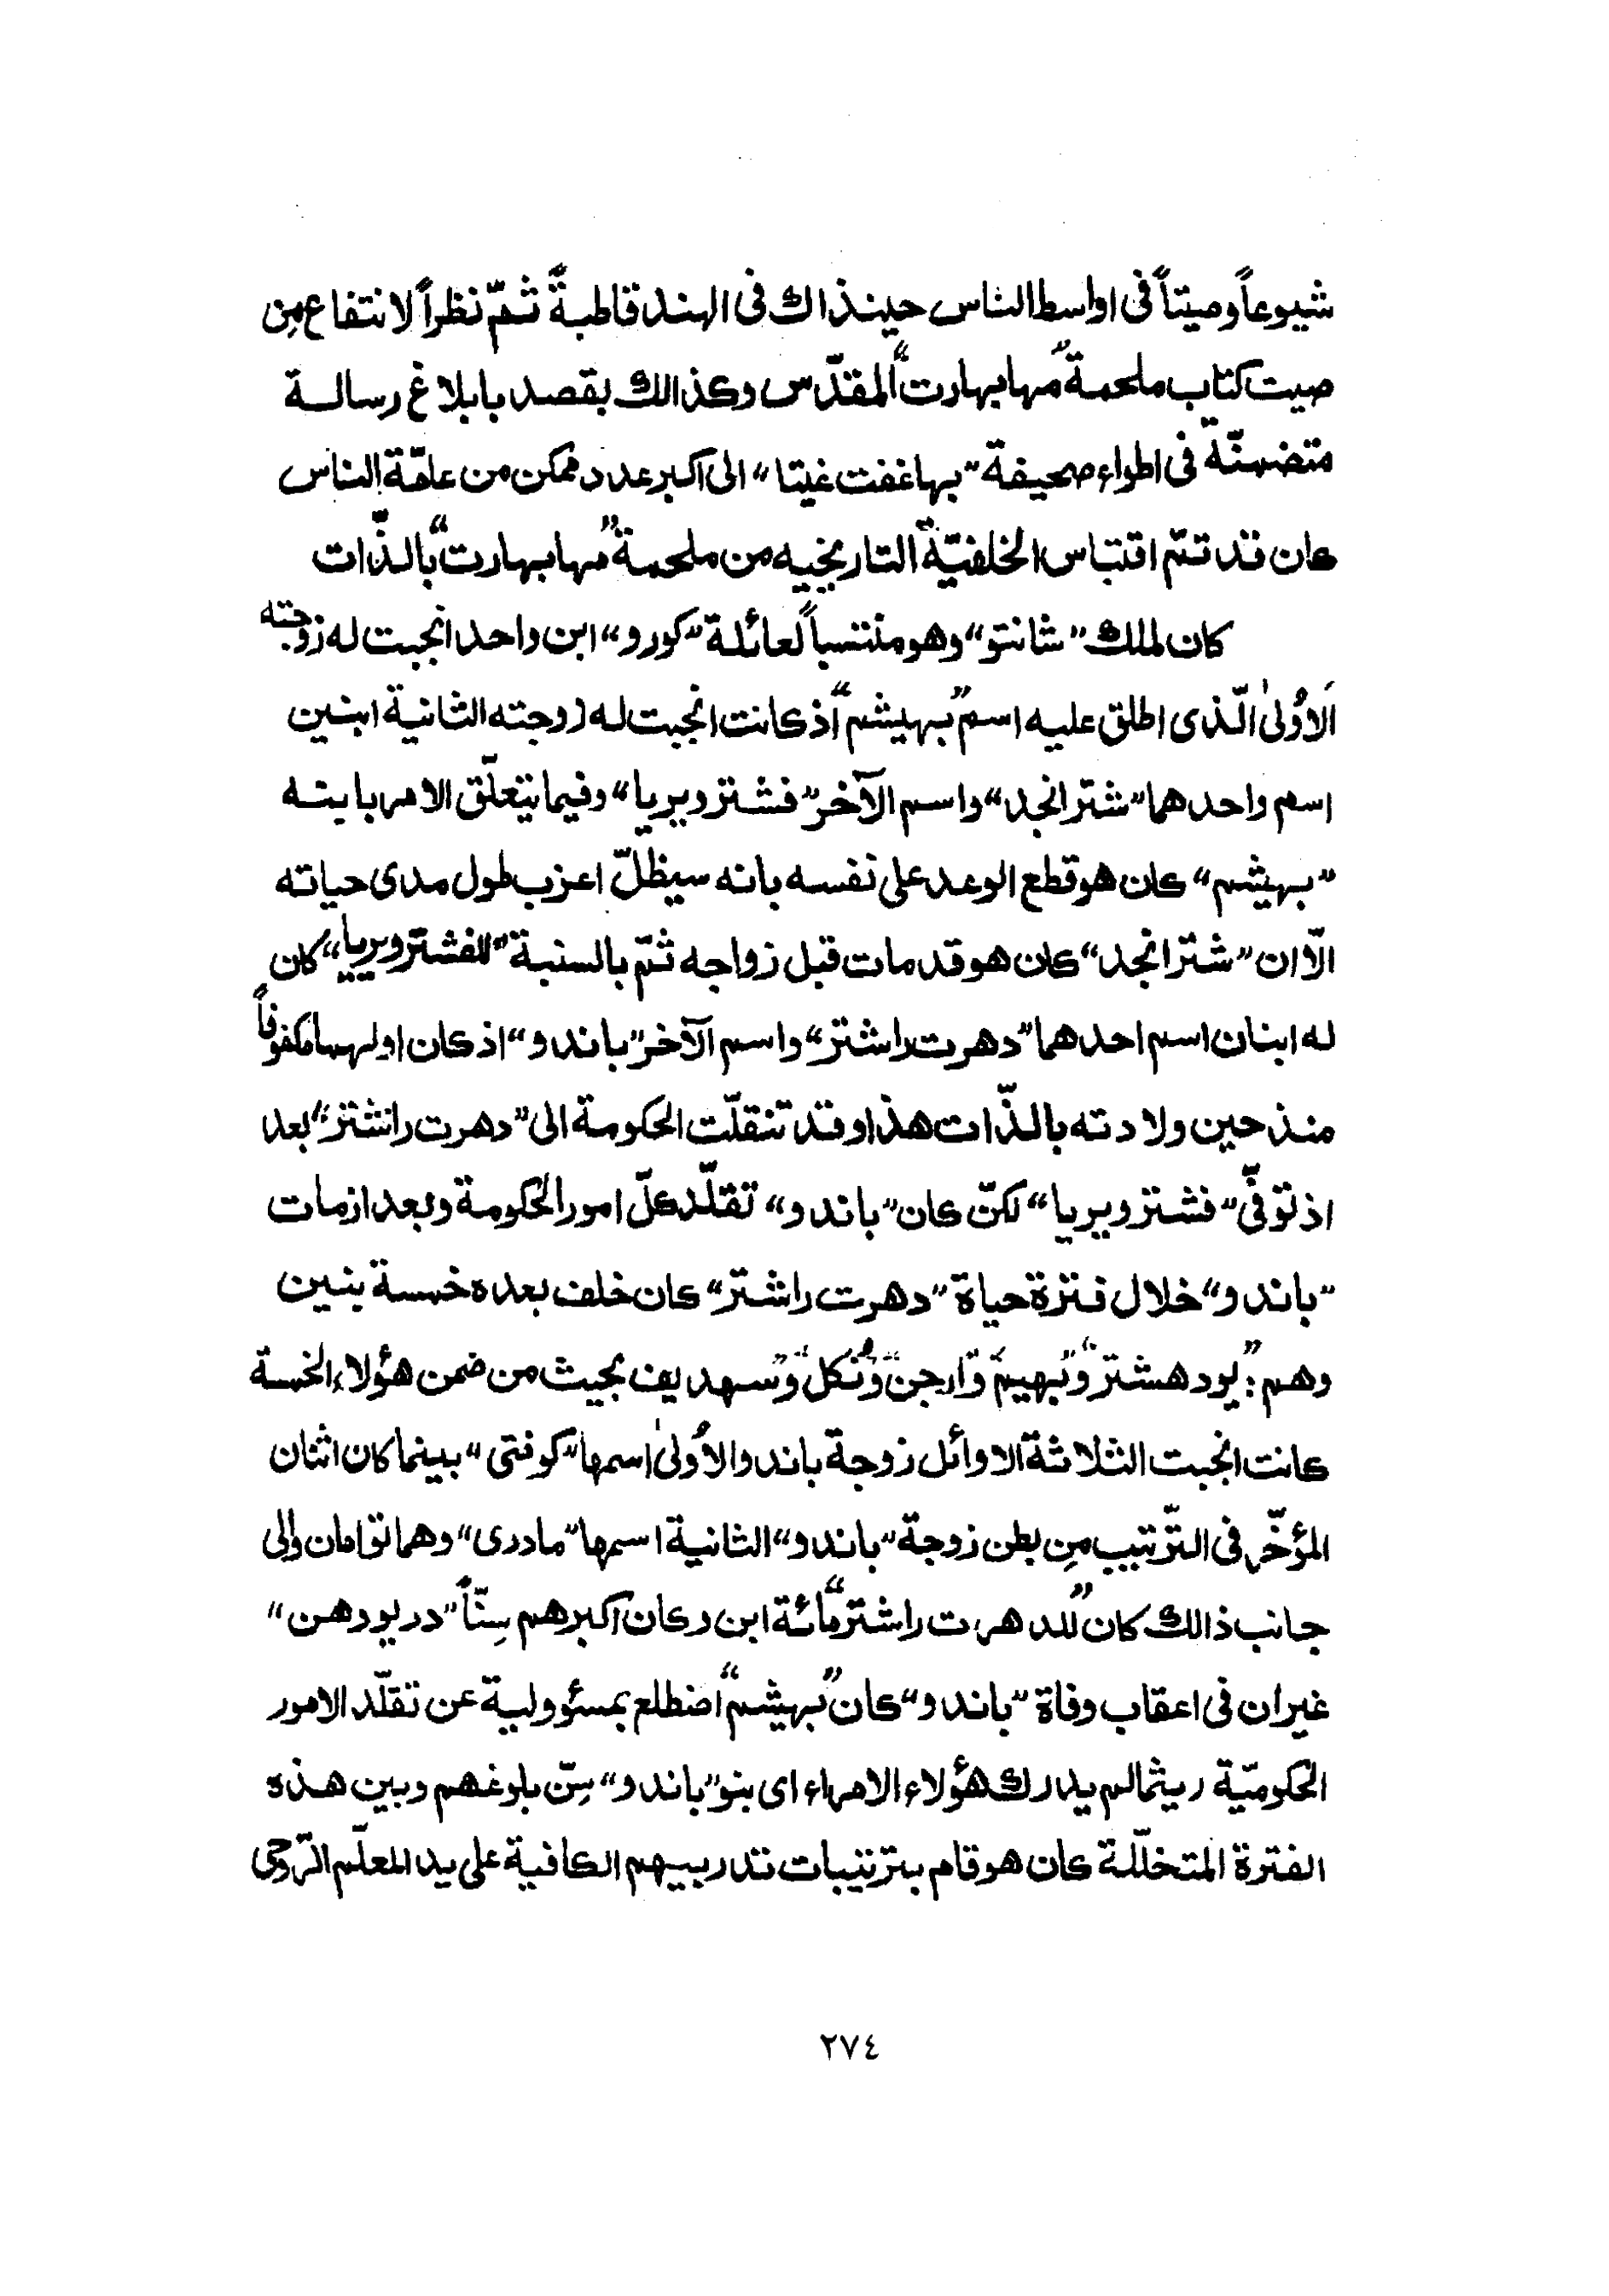 شيوعاً وصيتاً فى اواسط الناس حينذاك فى الهند قاطبةً ثمّ نظراً لانتفاع مِن
صيت كتاب ملحمة "مهابهارت" المقدّس وكذالك بقصد بابلاغ رسالة
متضمنّة فى اطواء صحيفة "بهاغفت غيتا" الى اكبر عدد ممكن من عامّة الناس
كان قد تمّ اقتباس الخلفيّة التاريخيه من ملحمة "مهابهارت" بالذّات
كان للملك "شانتو" وهو منتسباً لعائلة "كورو" ابن واحد انجبت له زوجته
الاُولىٰ الّذى اطلق عليه اسم "بهيشم" اذ كانت انجبت له زوجته الثانية ابنين
اسم واحدهما "شترانجد" واسم الآخر "فشترويريا" وفيما يتعلّق الامر بابنه
"بهيشم" كان هو قطع الوعد على نفسه بانه سيظلّ اعزب طول مدى حياته
الّا ان "شترانجد" كان هو قد مات قبل زواجه ثمّ بالسنبة "للفشترويريا" كان
له ابنان اسم احدهما "دهرت راشتر" واسم الآخر "باندو" اذ كان اولهما مكفوفاً
منذ حين ولادته بالذّات هذا وقد تنقلّت الحكومة الى "دهرت راشتر" بعد
اذ توفّى "فشترويريا" لكنّ كان "باندو" تقلّد كلّ امور الحكومة وبعد اذ مات
"باندو" خلال فترة حياة "دهرت راشتر" كان خلف بعده خمسة بنين
وهم: "يودهشتر" و "بهيم" و "ارجن" و "نُكل" و "سهديف" بحيث من ضمن هؤلاء الخمسة
كانت انجبت الثلاثة الاوائل زوجة باندو الاُولىٰ اسمها "كونتى" بينما كان اثنان
المؤخّر فى التّرتيب مِن بطن زوجة "باندو" الثانية اسمها "مادرى" وهما توامان والى
جانب ذالك كان "للدهرت راشتر" مائة ابن وكان اكبرهم سِنّاً "دريودهن"
غير ان فى اعقاب وفاة "باندو" كان "بهيشم" اضطلع بمسئوولية عن تقلّد الامور
الحكوميّة ريثما لم يدارك هؤلاء الامراء اى بنو "باندو" سِنّ بلوغهم وبين هذه
الفترة المتخلّلة كان هو قام بترتيبات تدريبهم الكافية على يد المعلّم الرّوحى
٢٧٤